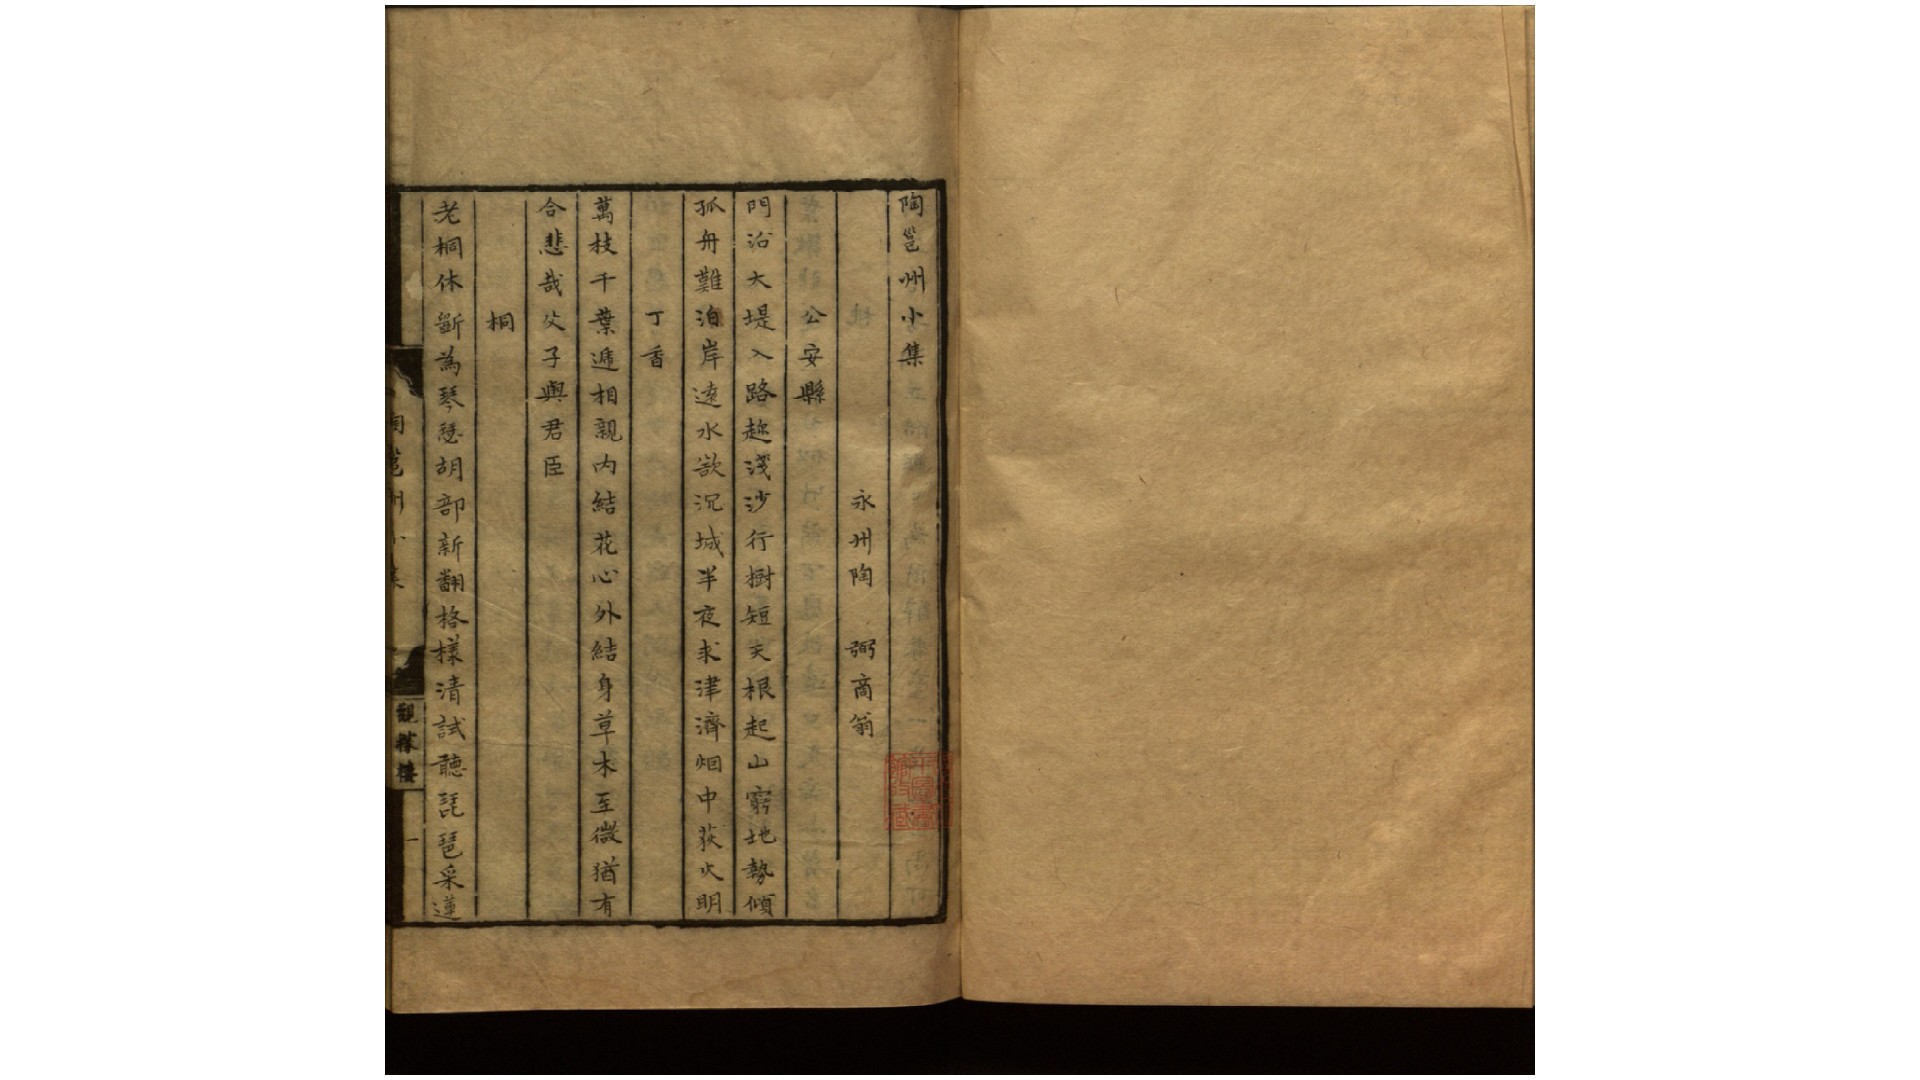 陶邕州小集
永州陶　弼商翁
公安縣
門沿大堤入路趂淺沙行樹短天根起山窮地勢傾
孤舟難泊岸遠水欲沉城半夜求津濟烟中荻火明
丁香
萬枝千葉遞相親内結花心外結身草木至微猶有
合悲哉父子與君臣
桐
老桐休斲為琴瑟胡部新翻格樣清試聽琵琶采蓮
陶邕州小集
一
觀稼樓